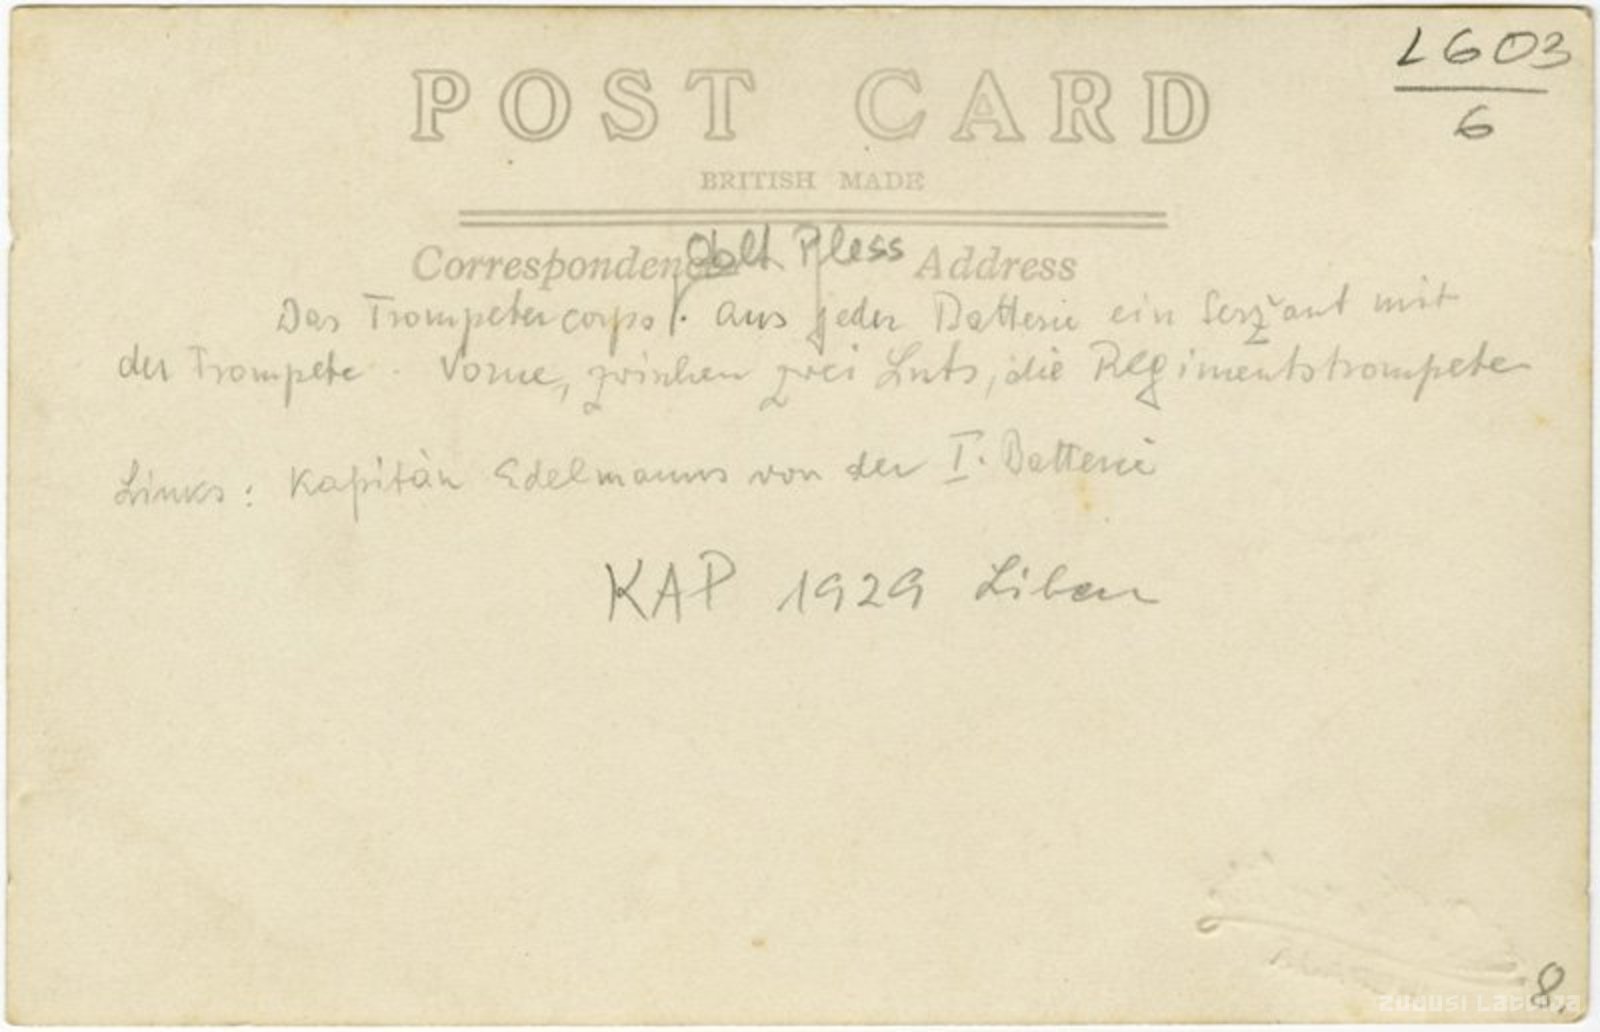 L603
6
POST CARD
BRITISH MADE
Correspondence Address
Oblt Pless
Das Trompetercorps. Aus jeder Batterie ein Seržant mit
der Trompete. Vorne, zwischen zwei Lnts, die Regimentstrompeter
Links: Kapitän Edelmanns von der I. Batterie
KAP 1929 Libau
8.
Zudusi Latvija